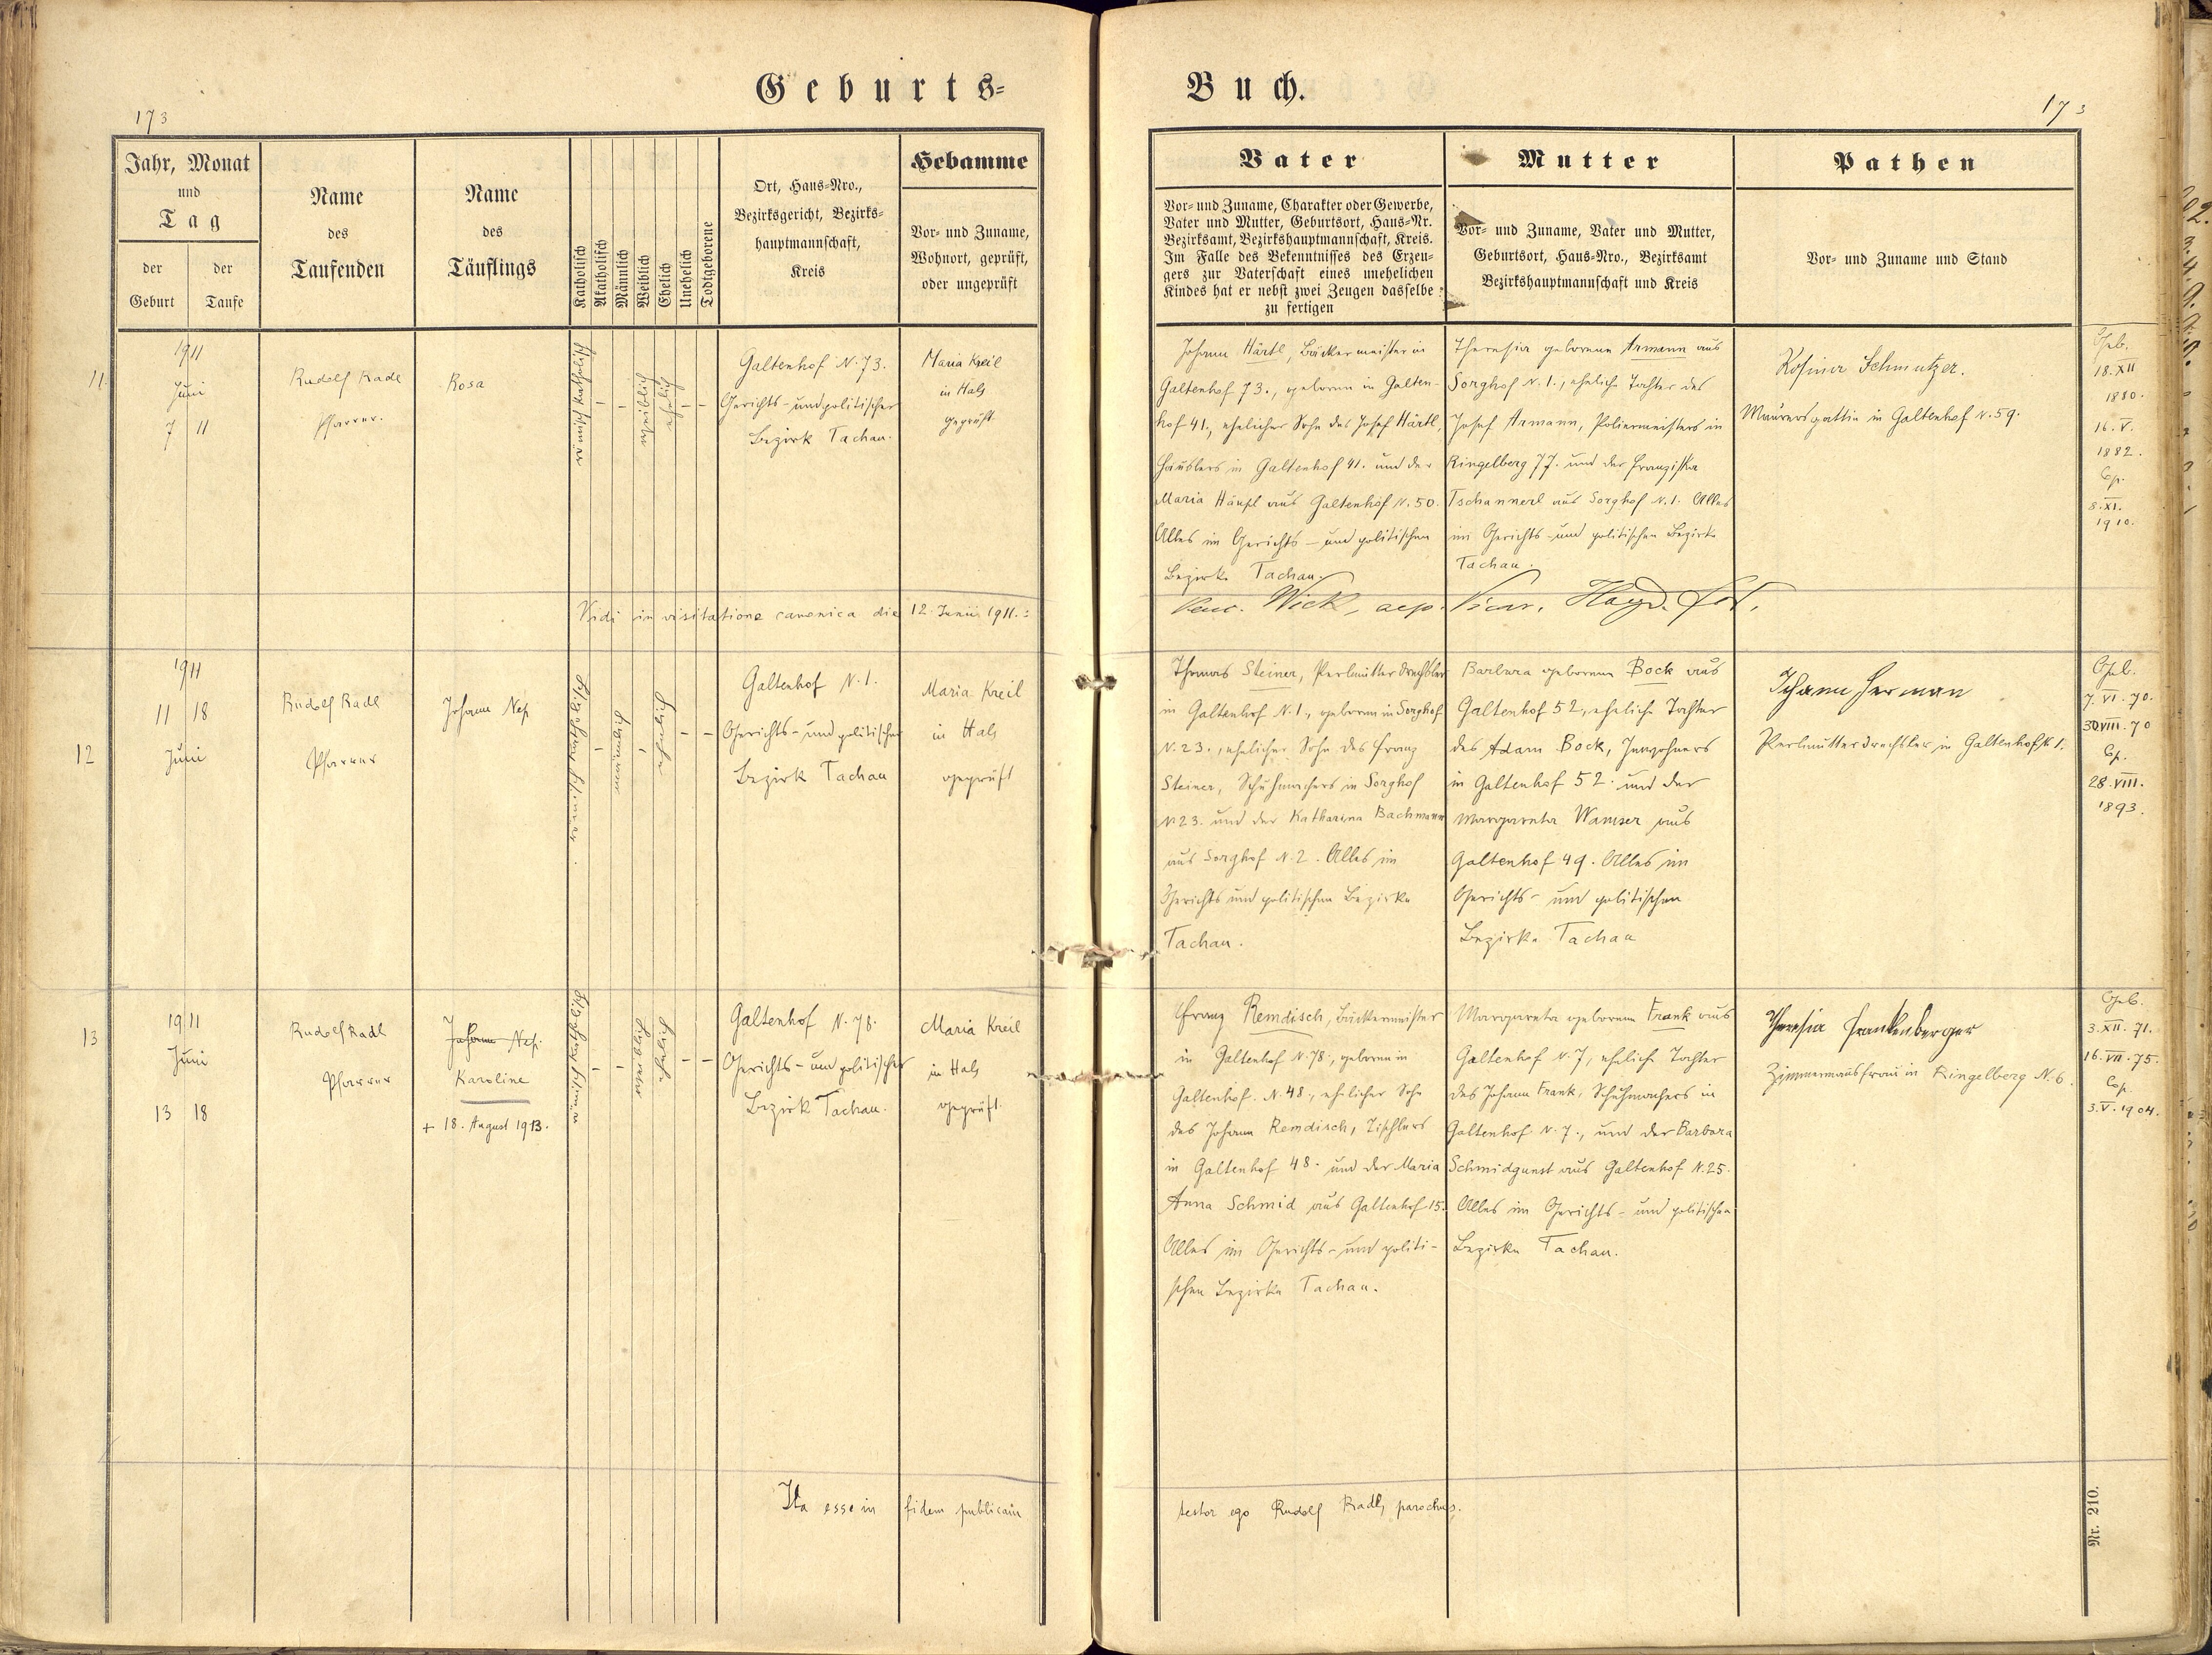 Geburts-
Buch.
173
173
Jahr, Monat
und
Tag
der
Geburt
der
Taufe
Name
des
Taufenden
Name
des
Täuflings
Katholisch
Akatholisch
Männlich
Weiblich
Ehelich
Unehelich
Todtgeborene
Ort, Haus-Nro.,
Bezirksgericht, Bezirks-
hauptmannschaft,
Kreis
Hebamme
Vor- und Zuname,
Wohnort, geprüft,
oder ungeprüft
Vater
Vor- und Zuname, Charakter oder Gewerbe,
Vater und Mutter, Geburtsort, Haus-Nr.
Bezirksamt, Bezirkshauptmannschaft, Kreis.
Im Falle des Bekenntnisses des Erzeu-
gers zur Vaterschaft eines unehelichen
Kindes hat er nebst zwei Zeugen dasselbe
zu fertigen
Mutter
Vor- und Zuname, Vater und Mutter,
Geburtsort, Haus-Nro., Bezirksamt
Bezirkshauptmannschaft und Kreis
Pathen
Vor- und Zuname und Stand
11.
1911
Juni
7 11
Rudolf Radl
Pfarrer.
Rosa
weiblich
ehelich
Galtenhof N. 73.
Gerichts- und politischer
Bezirk Tachau.
Maria Kreil
in Hals
geprüft
Johann Härtl, Bäckermeister in
Galtenhof 73., geboren in Galten-
hof 41., ehelicher Sohn des Josef Härtl,
Häuslers in Galtenhof 41. und der
Maria Häupl aus Galtenhof N. 50.
Alles im Gerichts- und politischen
Bezirke Tachau.
Theresia geborene Armann aus
Sorghof N. 1., eheliche Tochter des
Josef Armann, Poliermeisters in
Ringelberg 77. und der Franziska
Tschannerl aus Sorghof N. 1. Alles
im Gerichts- und politischen Bezirke
Tachau.
Rosina Schmutzer.
Maurersgattin in Galtenhof N. 59.
Geb.
18. XII
1880.
16. V.
1882.
Cop.
8. XI.
1910.
Vidi in visitatione canonica die 12. Junii 1911.:
Wick, Vicar.
12
1911
11 18
Juni
Rudolf Radl
Pfarrer
Johann Nep
Galtenhof N. 1.
Gerichts- und politischer
Bezirk Tachau
Maria Kreil
in Hals
geprüft
Thomas Steiner, Perlmutterdrechsler
in Galtenhof N. 1., geboren in Sorghof
N. 23., ehelicher Sohn des Franz
Steiner, Schuhmachers in Sorghof
N 23. und der Katharina Bachmann
aus Sorghof N. 2. Alles im
Gerichts und politischen Bezirke
Tachau.
Barbara geborene Bock aus
Galtenhof 52, eheliche Tochter
des Adam Bock, Inwohners
in Galtenhof 52. und der
Margareta Wamser aus
Galtenhof 49. Alles im
Gerichts- und politischen
Bezirke Tachau
Johann Herman
Perlmutterdrechsler in Galtenhof N 1.
Geb.
7. VI. 70.
30 VIII. 70
Cop.
28. VIII.
1893.
13
1911
Juni
13 18
Rudolf Radl
Pfarrer
Johann Nep.
Karoline
+ 18. August 1913.
Galtenhof N. 78.
Gerichts- und politischer
Bezirk Tachau.
Maria Kreil
in Hals
geprüft.
Franz Remdisch, Bäckermeister
in Galtenhof N. 78., geboren in
Galtenhof. N. 48., ehelicher Sohn
des Johann Remdisch, Tischlers
in Galtenhof 48. und der Maria
Anna Schmid aus Galtenhof 15.
Alles im Gerichts- und politi-
schen Bezirke Tachau.
Margareta geborene Frank aus
Galtenhof N. 7, eheliche Tochter
des Johann Frank, Schuhmachers in
Galtenhof N. 7., und der Barbara
Schmidgunst aus Galtenhof N. 25.
Alles im Gerichts- und politischen
Bezirke Tachau.
Theresia Frankenberger
Zimmermannsfrau in Ringelberg N. 6.
Geb.
3. XII. 71.
16. VII. 75.
Cop.
3. V. 1904.
Ita esse in fidem publicam
testor ego Rudolf Radl, parochus.
Nr. 210.